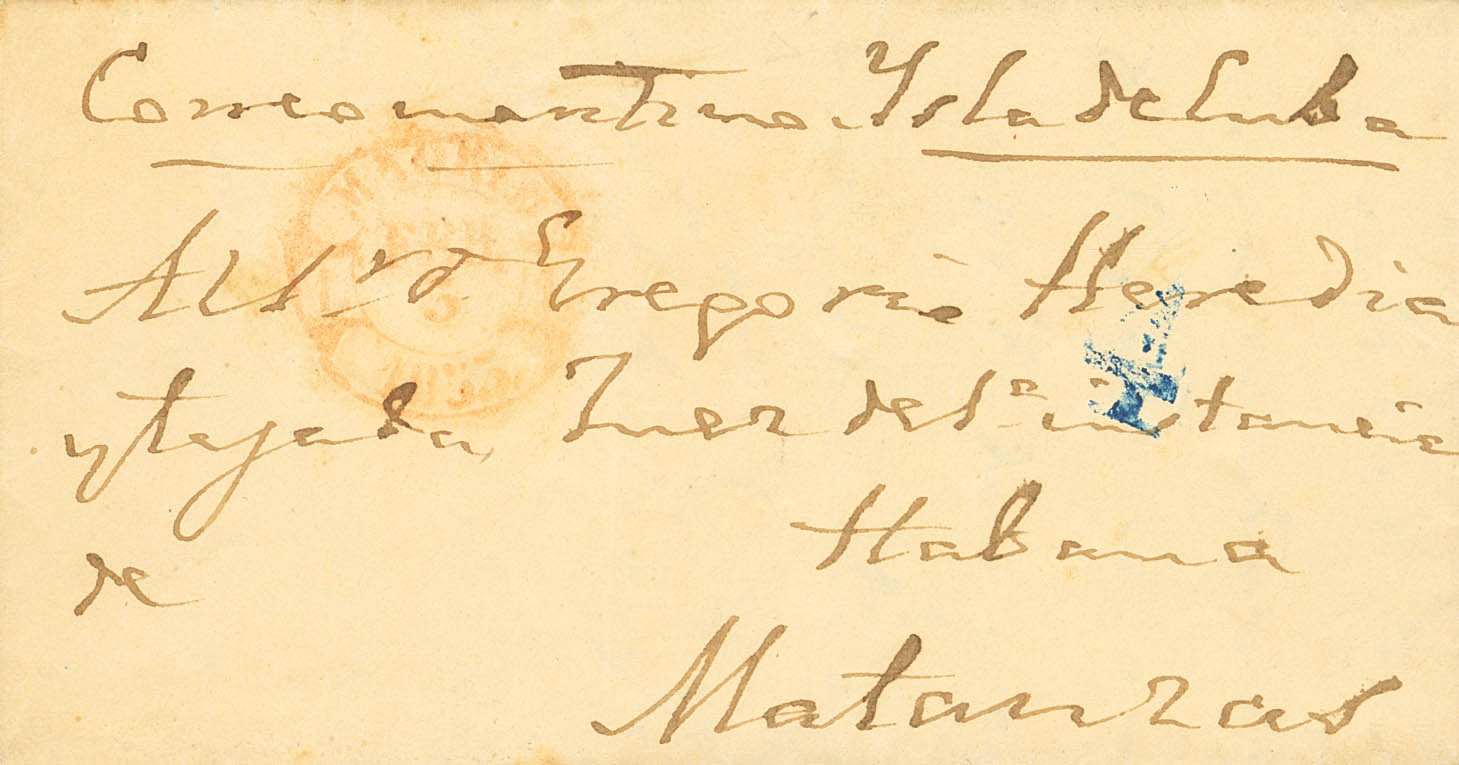 Correo maritimo. Ysla de Cuba
Al Sr. d. Gregorio Heredia
y tejada, Juez de 1ª instancia
de Habana
Matanzas
FEB
3